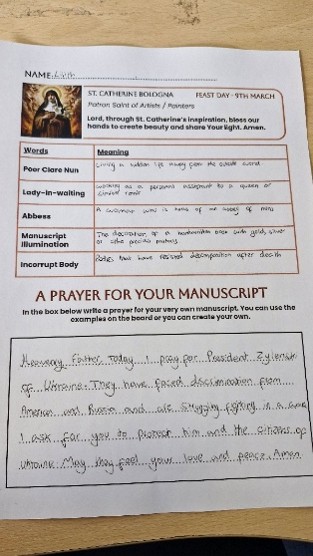 NAME:
ST. CATHERINE BOLOGNA FEAST DAY - 9TH MARCH
Patron Saint of Artists / Painters
Lord, through St. Catherine's inspiration, bless our
hands to create beauty and share Your light. Amen.
Words Meaning
Poor Clare Nun Living a hidden life away from the outside world
Lady-in-waiting working as a personal assistant to a queen or
Abbess A woman who is head of an abbey of nuns
Manuscript Illumination The decoration of a handwritten book with gold, silver
or other precious
Incorrupt Body Bodies that have resisted decomposition after death
A PRAYER FOR YOUR MANUSCRIPT
In the box below write a prayer for your very own manuscript. You can use the
examples on the board or you can create your own.
Heavenly Father, Today I pray for President Zylensk
of Ukraine. They have faced discrimination from
American and Russia and are fighting in a
I ask for you to protect him and the citizens of
Ukraine. May they feel your love and peace. Amen